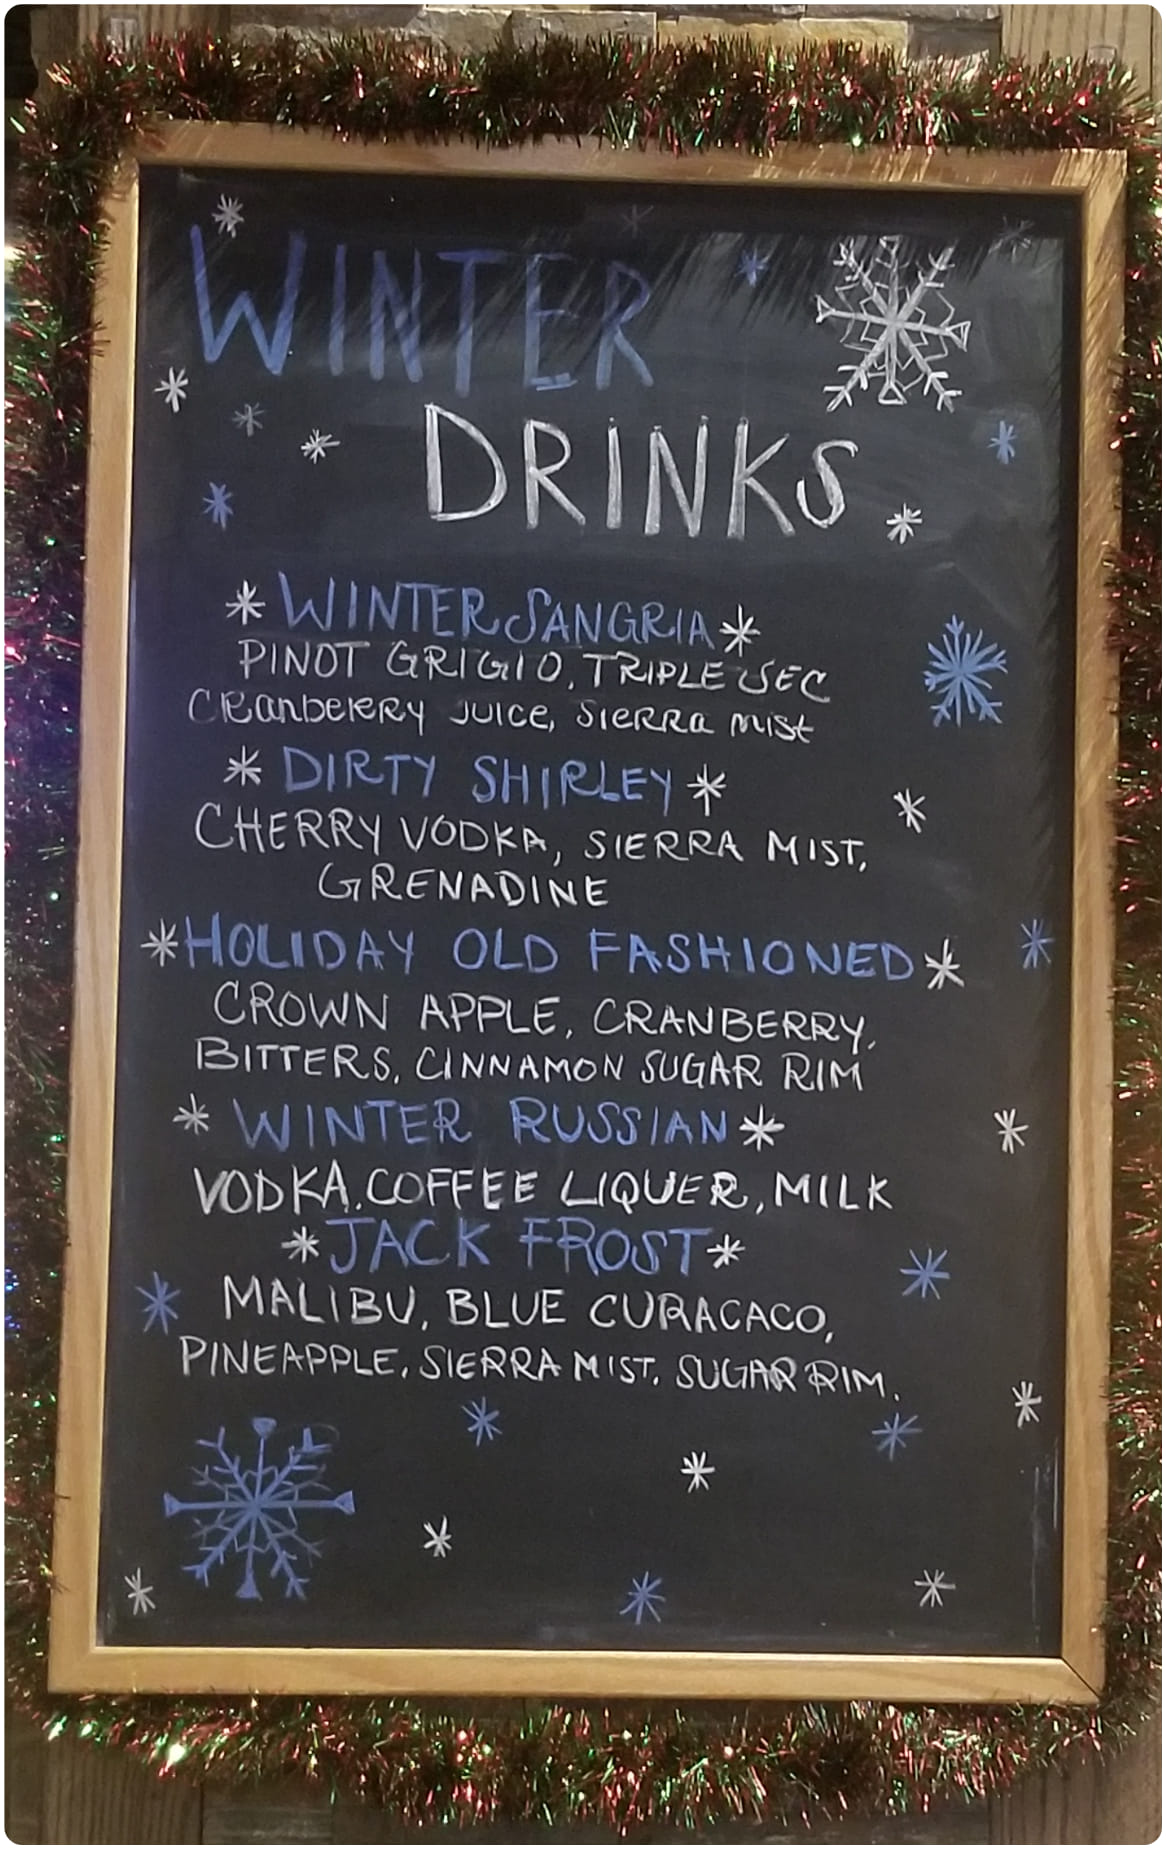 WINTER
DRINKS
* WINTER SANGRIA *
PINOT GRIGIO, TRIPLE SEC
Cranberry Juice, Sierra mist
* DIRTY SHIRLEY *
CHERRY VODKA, SIERRA MIST,
GRENADINE
* HOLIDAY OLD FASHIONED *
CROWN APPLE, CRANBERRY,
BITTERS, CINNAMON SUGAR RIM
* WINTER RUSSIAN *
VODKA, COFFEE LIQUER, MILK
* JACK FROST *
MALIBU, BLUE CURACACO,
PINEAPPLE, SIERRA MIST, SUGAR RIM.